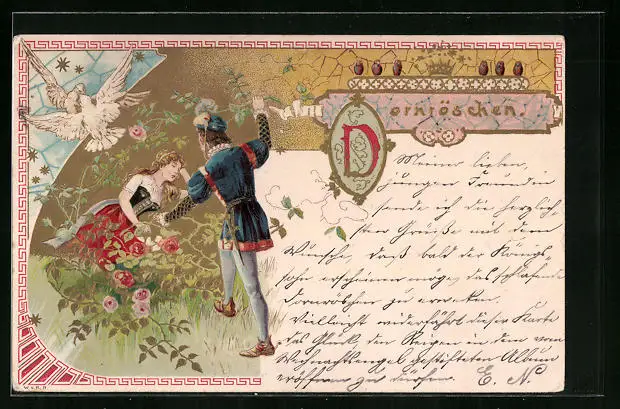 Dornröschen.
Meiner lieben,
jungen Freundin
sende ich die herzlich-
sten Grüße mit dem
Wunsche, daß bald der Königs-
sohn erscheinen möge, das schlafende
Dornröschen zu erwecken.
Vielleicht widerfährt dieser Karte
das Glück, den Reigen in dem vom
Weihnachtsengel gestifteten Album
eröffnen zu dürfen. E. N.
W. v. R. R.